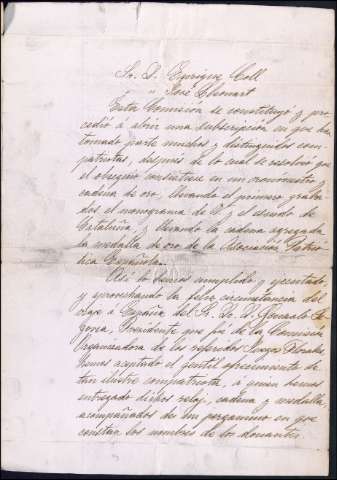 Sr. D. Enrique Coll
" " José Llomart
Esta Comisión se constituyó y pro
cedió á abrir una subscripción en que han
tomado parte muchos y distinguidos com-
patriotas, después de lo cual se resolvió que
el obsequio consistiese en un cronómetro y
cadena de oro. Llevando el primero graba-
dos el monograma de V. y el escudo de
Cataluña, y llevando la cadena agregada
la medalla de oro de la Asociación Patrió-
tica Española.
Así lo hemos cumplido y ejecutado,
y aprovechando la feliz circunstancia del
viaje á España del Sr. D. Gonzalo Se-
govia, Presidente que fué de la Comisión
Organizadora de los referidos Juegos Florales
hemos aceptado el gentil ofrecimiento de
tan ilustre compatriota, á quien hemos
entregado dichos reloj, cadena y medalla,
acompañados de un pergamino en que
constan los nombres de los donantes.